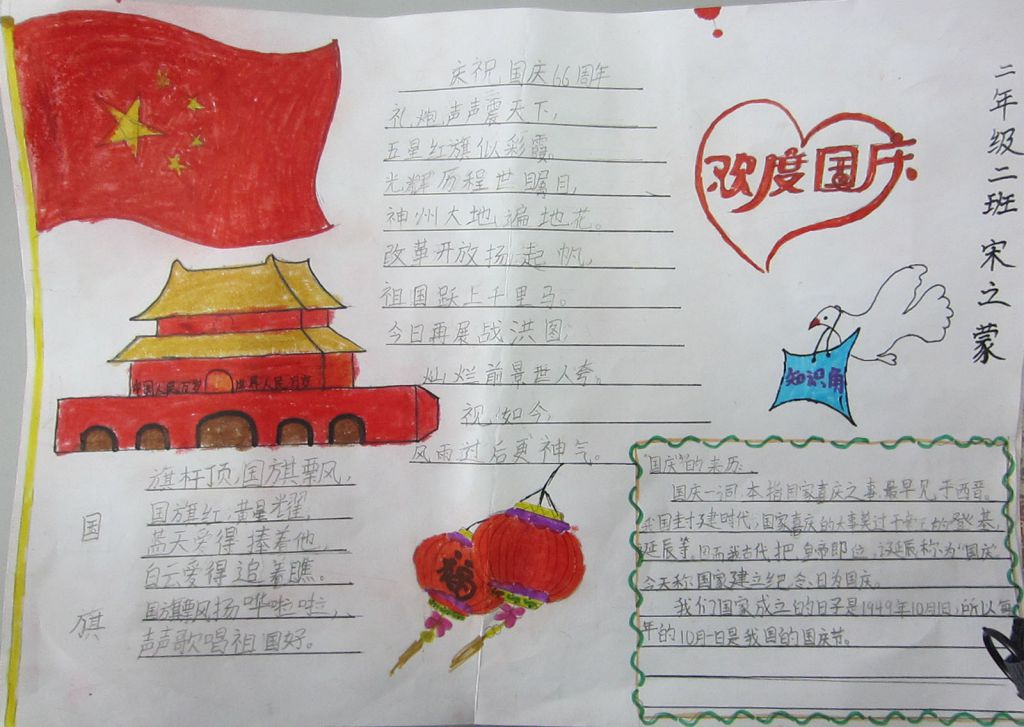 庆祝国庆66周年
礼炮声声震天下，
五星红旗似彩霞。
光辉历程世瞩目，
神州大地遍地花。
改革开放扬起帆，
祖国跃上千里马。
今日再展战洪图，
灿烂前景世人夸。
视如今，
风雨过后更神气。
欢度国庆
二年级二班 宋之蒙
知识角
中国人民万岁 世界人民万岁
国旗
旗杆顶，国旗飘，
国旗红，黄星耀，
蓝天爱得捧着他，
白云爱得追着瞧。
国旗飘扬哗啦啦，
声声歌唱祖国好。
福
"国庆"的来历
国庆一词，本指国家喜庆之事，最早见于西晋。
我国封建时代，国家喜庆的大事莫过于的登基，
诞辰等，因而我古代把皇帝即位，诞辰称为"国庆"
今天称国家建立纪念日为国庆。
我们国家成立的日子是1949年10月1日，所以每
年的10月一日是我国的国庆节。